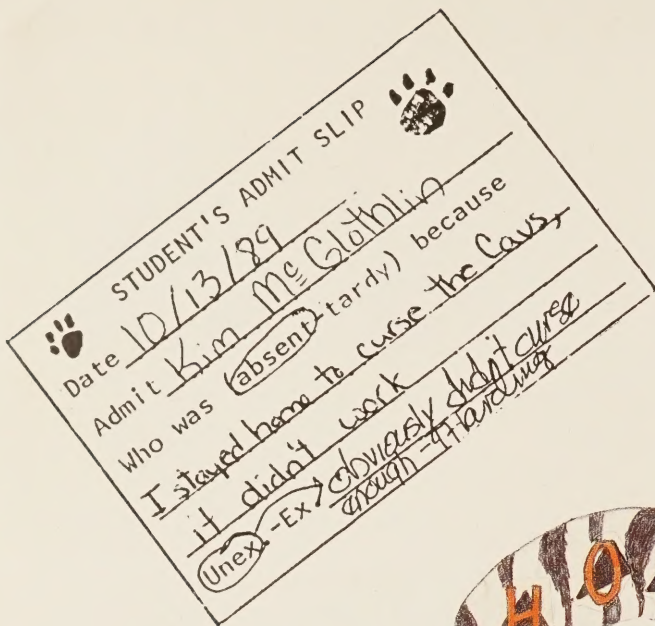 STUDENT'S ADMIT SLIP
Date 10/13/89
Admit Kim McGlothlin
Who was (absent-tardy) because
I stayed home to curse the Cavs,
it didn't work
Unex.-Ex obviously didn't curse
enough - Harding
H O